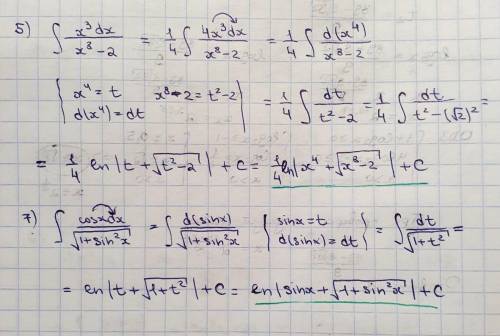 5) ∫ x³dx / (x⁸-2) = 1/4 ∫ 4x³dx / (x⁸-2) = 1/4 ∫ d(x⁴) / (x⁸-2)
{ x⁴ = t   x⁸-2 = t²-2
d(x⁴) = dt } = 1/4 ∫ dt / (t²-2) = 1/4 ∫ dt / (t²-(√2)²) =
= 1/4 ln|t + √(t²-2)| + C = 1/4 ln|x⁴ + √(x⁸-2)| + C
7) ∫ cosxdx / √(1+sin²x) = ∫ d(sinx) / √(1+sin²x) { sinx = t
d(sinx) = dt } = ∫ dt / √(1+t²) =
= ln|t + √(1+t²)| + C = ln|sinx + √(1+sin²x)| + C